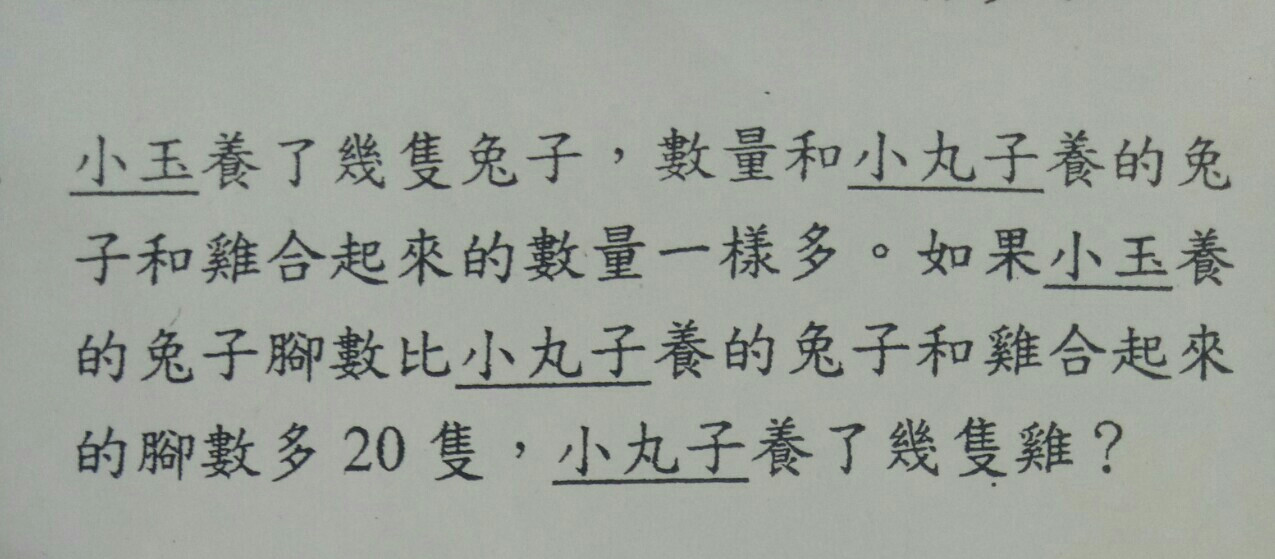 小玉養了幾隻兔子，數量和小丸子養的兔
子和雞合起來的數量一樣多。如果小玉養
的兔子腳數比小丸子養的兔子和雞合起來
的腳數多 20 隻，小丸子養了幾隻雞？